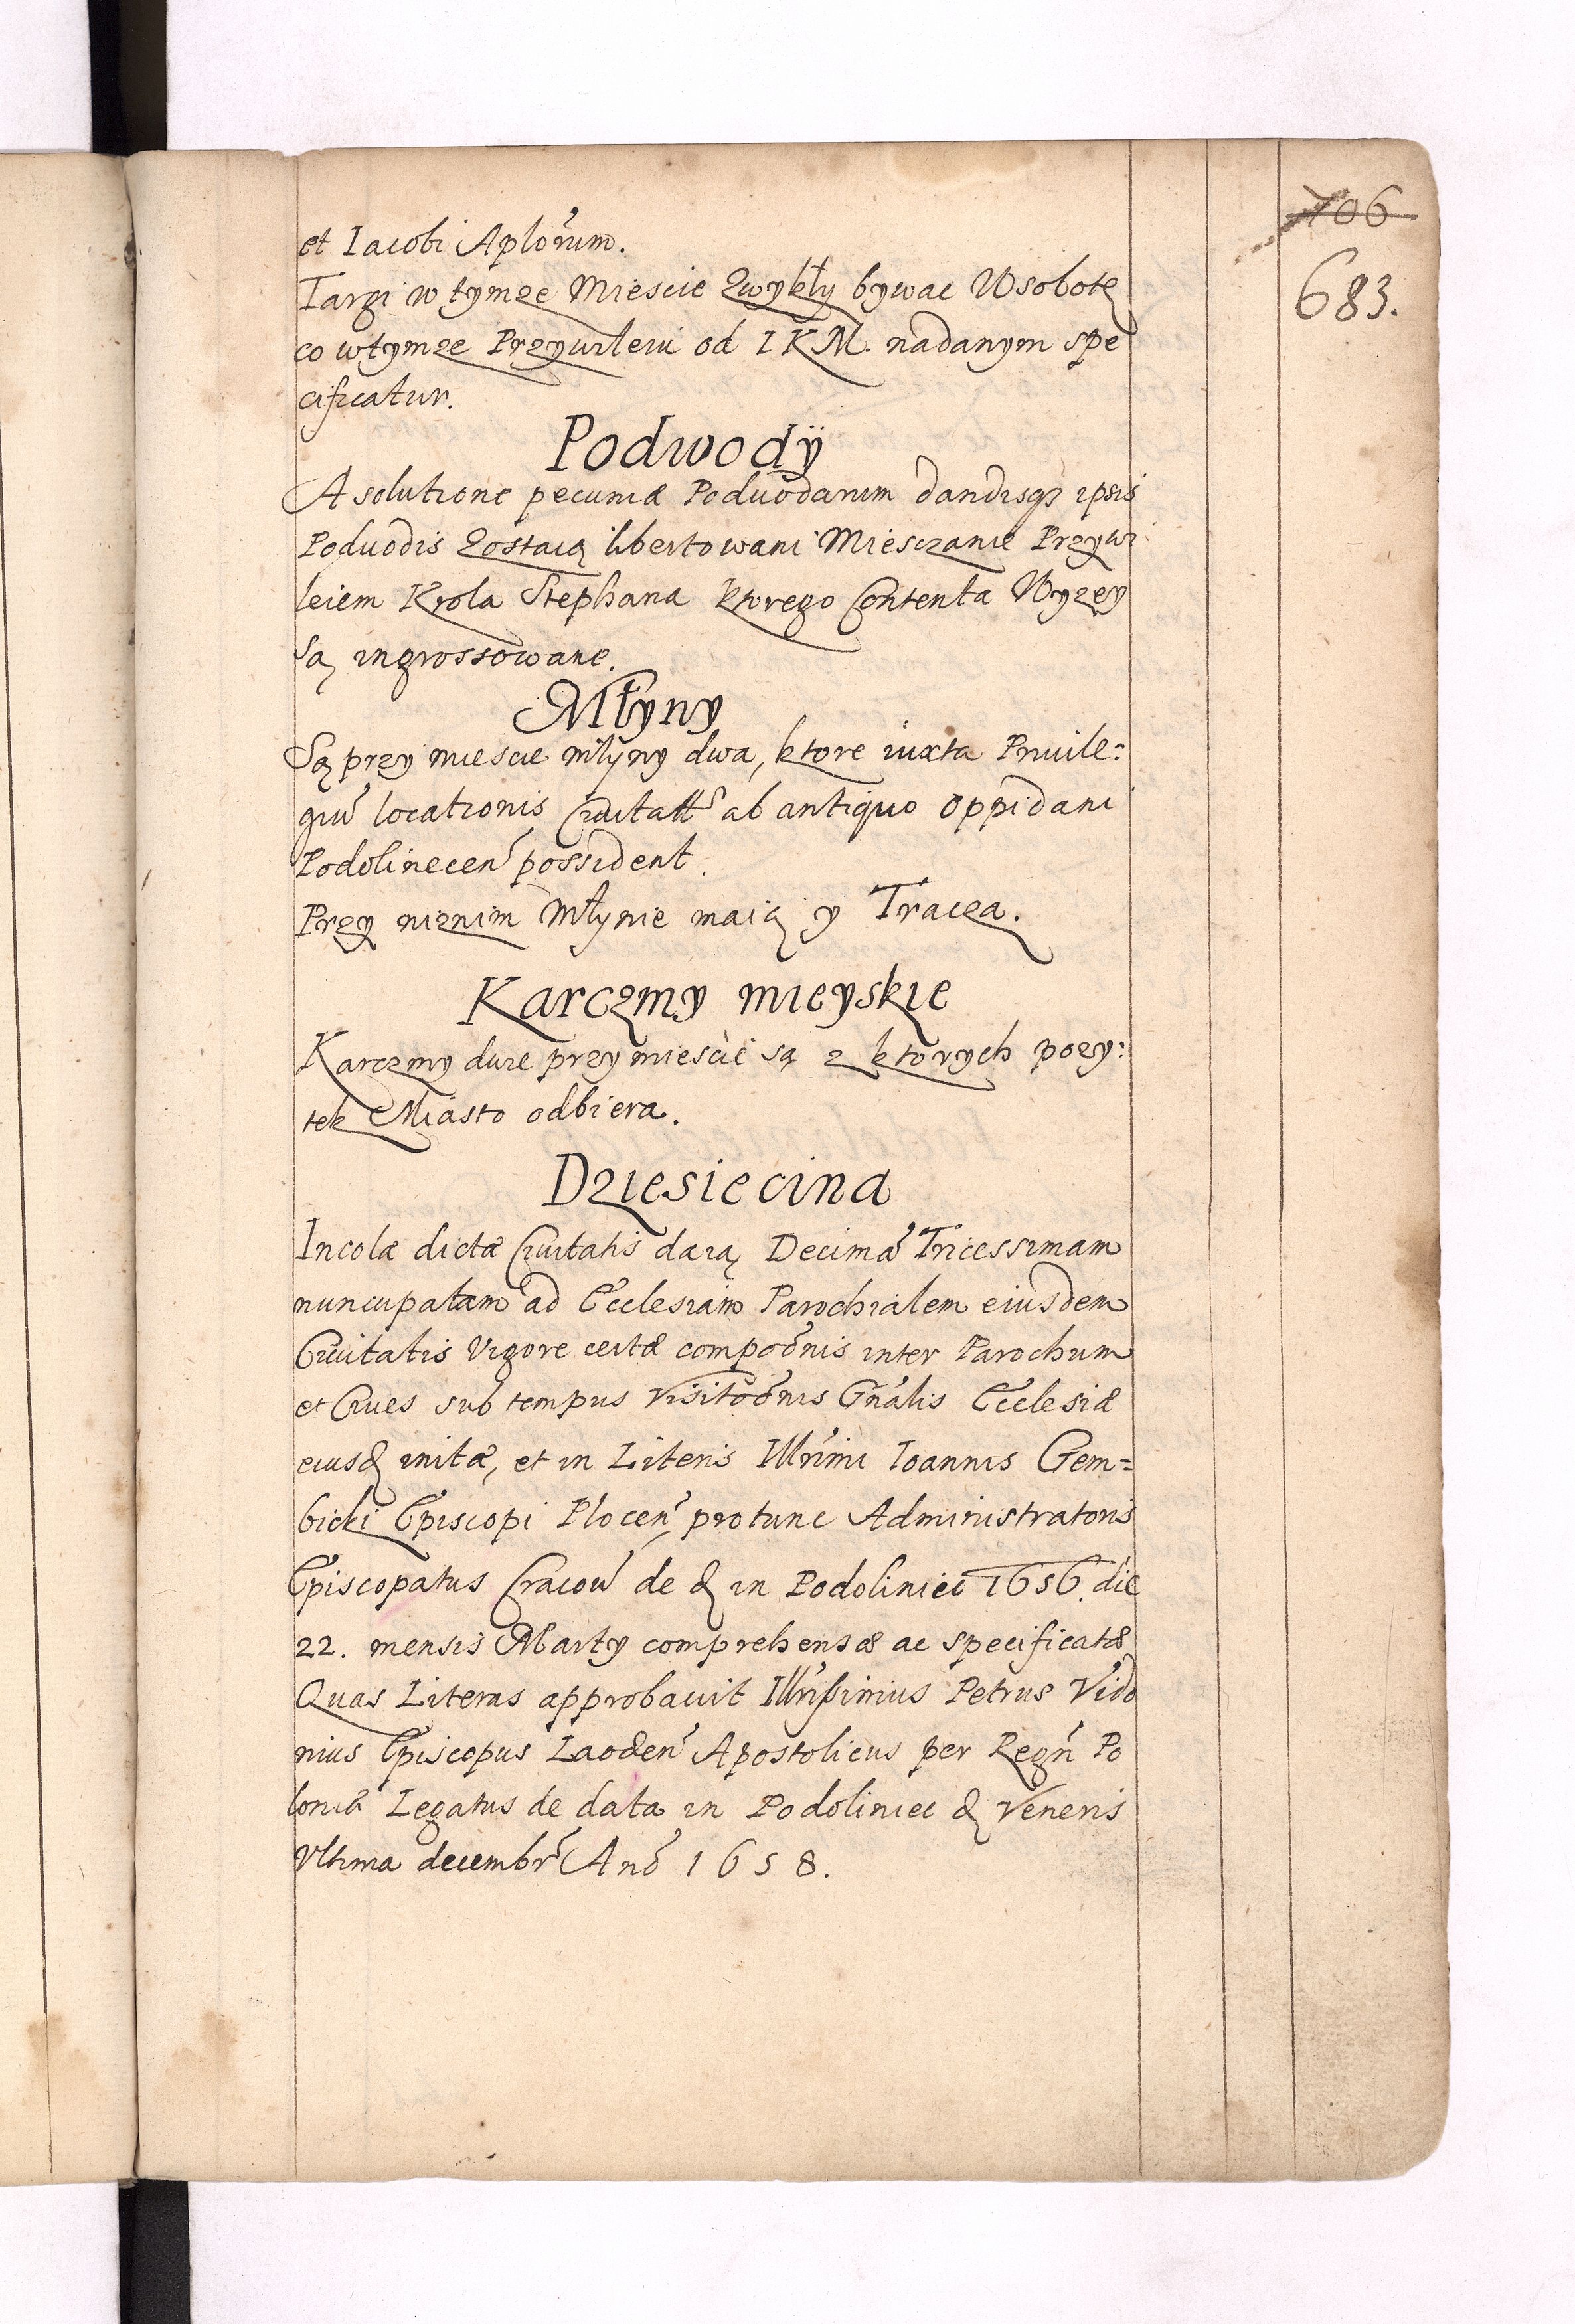 706
683.
et Iacobi Aplorum.
Targi w tymze Miescie Zwykły bywac W sobotę
co wtymze Przywileiu od I K M. nadanym spe
cificatur.
Podwody
A solutione pecuniæ Poduodarum dandisq3 ipsis
Poduodis Zostaią libertowani Miesczanie Przywi
leiem Krola Stephana ktorego Contenta Wyzey
Są ingrossowane.
Młyny
Są przy miescie młyny dwa, ktore iuxta Priuile=
giu locationis Ciuitatis ab antiquo Oppidani
Podolinecen possident.
Przy niznim Młynie maią y Tracza.
Karczmy mieyskie
Karczmy dwie przy miescie są z ktorych pozy:
tek Miasto odbiera.
Dziesiecina
Incolæ dictæ Ciuitatis daią Decima Tricessimam
nuncupatam ad Ecclesiam Parochialem eiusdem
Ciuitatis Vigore certæ compoonis inter Parochum
et Ciues sub tempus Visitoonis Gnalis Ecclesiæ
eiusd initæ, et in Literis Illrimi Ioannis Gem=
bicki Episcopi Plocen protunc Administratoris
Episcopatus Cracou de d in Podoliniec 1656. die
22. mensis Marty comprehensæ ac specificatæ
Quas Literas approbauit Illrissimus Petrus Vido
nius Episcopus Laoden Apostolicus per Regn Po
loniæ Legatus de data in Podoliniec d Veneris
Vltima decembr Ano 1658.